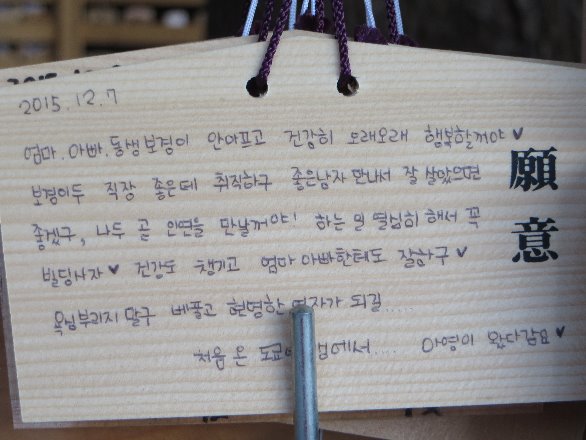 2015.12.7
엄마.아빠.동생보경이 안아프고 건강히 오래오래 행복할꺼야♥
보경이두 직장 좋은데 취직하구 좋은남자 만나서 잘 살았으면
좋겠구, 나두 곧 인연을 만날꺼야! 하는 일 열심히 해서 꼭
빌딩사자♥ 건강도 챙기고 엄마아빠한테도 잘하구♥
욕심부리지 말구 베풀고 현명한 여자가 되길....
처음 온 .... 아영이 왔다감요♥
願意